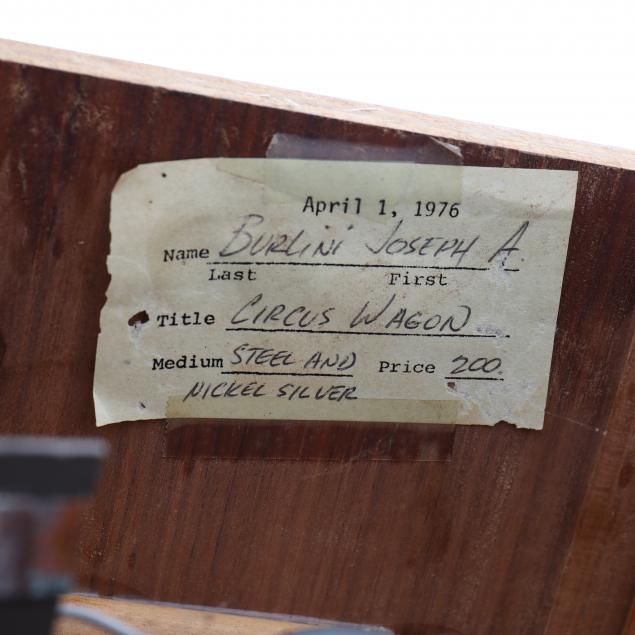 April 1, 1976
Name BURLINI JOSEPH A.
Last First
Title CIRCUS WAGON
Medium STEEL AND Price 200.
NICKEL SILVER